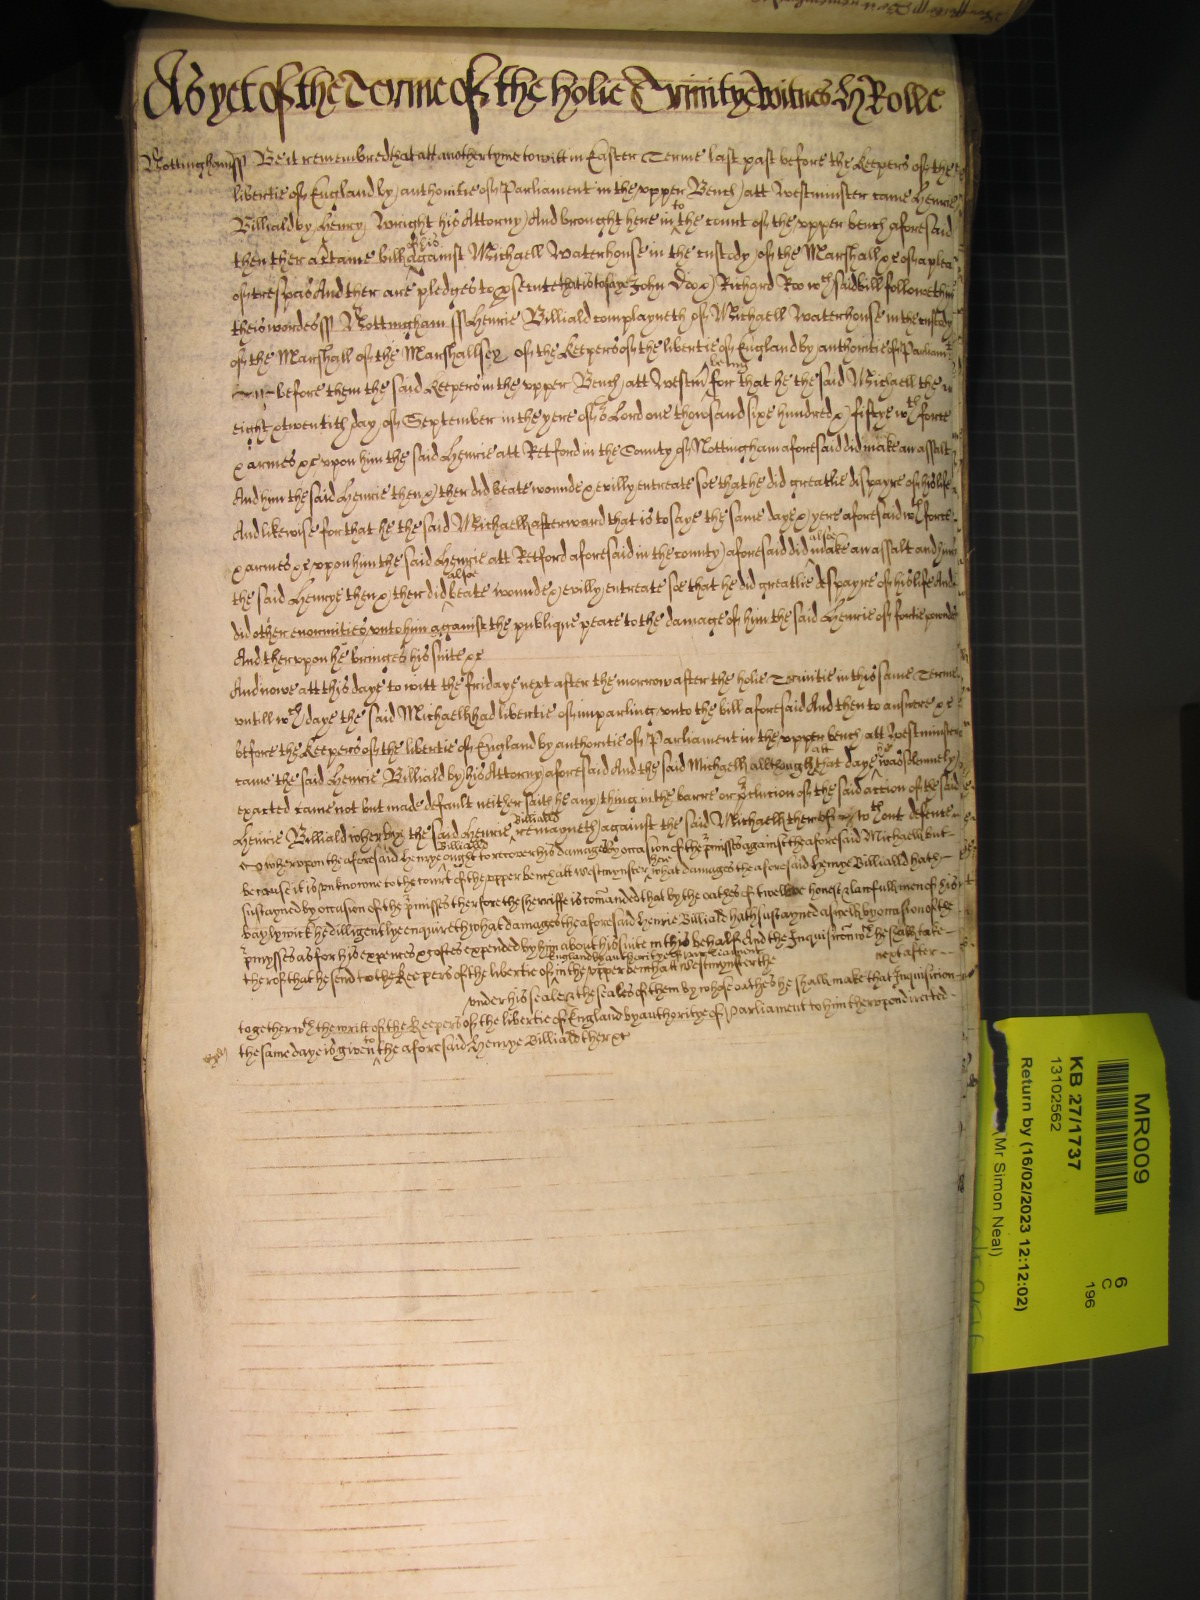 As yet of the Terme of the holie Trinitye witnes H Rolle
Nottingham ss Be it remembred that att another tyme to witt in Easter Terme last past before the Keepers of the
libertie of England by authoritie of Parliament in the upper Bench att Westminster came Henrie
Billiald by Henry Wright his Attorny And brought here in to the court of the upper bench aforesaid
then ther a certaine bill of his against Michaell Waterhouse in the custody of the Marshall &c of a plea
of trespas And ther are pledges to prosecute that is to saye John Doo & Richard Roo wch said bill followeth in
theis wordes ss Nottingham ss Henrie Billiald complayneth of Michaell Waterhouse in the custody
of the Marshall of the Marshallsey of the Keepers of the libertie of England by authoritie of Parliamt
before them the said Keepers in the upper Bench att Westm being for that he the said Michaell the
eight & twentith day of September in the yere of or Lord one thousand sixe hundred & fiftye wth force
& armes &c upon him the said Henrie att Retford in the County of Nottingham aforesaid did make an assalt
And him the said Henrie then & ther did beate wounde & evilly entreate soe that he did greatlie dispayre of his life
And likewise for that he the said Michaell afterward that is to saye the same daye & yere aforesaid wth force
& armes &c upon him the said Henrie att Retford aforesaid in the county aforesaid did alsoe make an assalt and him
the said Henrye then & ther did alsoe beate wounde & evilly entreate soe that he did greatlie despayre of his life And
did other enormities unto him against the publique peace to the damage of him the said Henrie of fortie powndes
And therupon he bringes his suite &c
And nowe att this daye to witt the fridaye next after the morrow after the holie Trinitie in this same Terme
untill wch daye the said Michaell had libertie of imparling unto the bill aforesaid And then to answere &c
before the Keepers of the libertie of England by authoritie of Parliament in the upper bench att Westminster
came the said Henrie Billiald by his Attorny aforesaid And the said Michaell allthough att that daye he was solemnely
exacted came not but made default neither saith he any thing in the barre or preclution of the said action of the said
Henrie Billiald wherby the said Henrie Billiald remayneth against the said Michaell therof wthout defence
&c wherupon the aforesaid Henrye Billiald ought to recover his damages by occasion of the pmisses against the aforesaid Michaell but
because it is unknowne to the court of the upper bench att Westmynster here what damages the aforesaid Henrye Billialld hath
sustayned by occasion of the pmisses therfore the sherriffe is comanded that by the oathes of twelve honest & lawfull men of his
baylywick he diligentlye enquire what damages the aforesaid Henrie Billiald hath sustayned aswell by occasion of the
pmysses as for his expences & costes expended by him about his suite in this behalf And the Inquisicon wch he shall take
therof that he send to the Keepers of the libertie of England by authoritye of parliament in the upper bench att Westmynster the next after
under his seale & the seales of them by whose oathes he shall make that Inquisition
together wth the writt of the Keepers of the libertie of England by authoritye of Parliament to him therupon directed
the same daye is given to the aforesaid Henrye Billiald ther &c
MR009
KB 27/1737
13102562
Return by (16/02/2023 12:12:02)
(Mr Simon Neal)
6
C
196